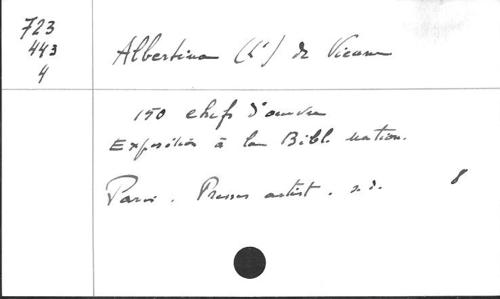 723
443
4
Albertina (L') de Vienne
150 chefs d'œuvre
Exposition à la Bibl. nation.
Paris. Presses artist. s.d. 8